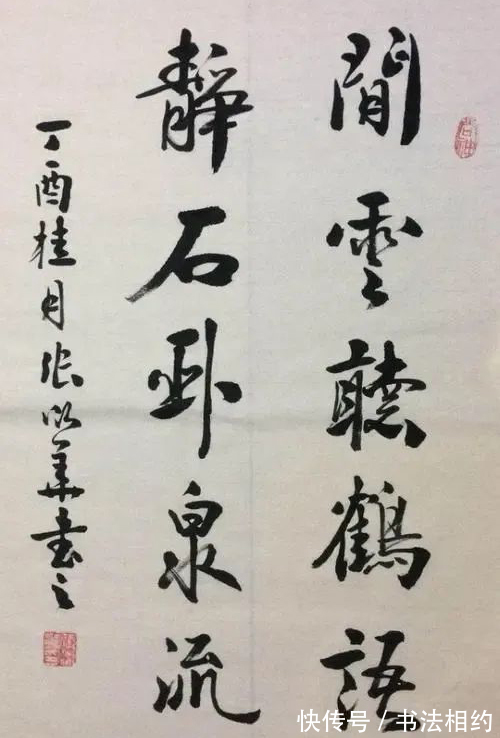 閒雲聽鶴語
靜石卧泉流
丁酉桂月張以华書之
快传号 / 书法相约